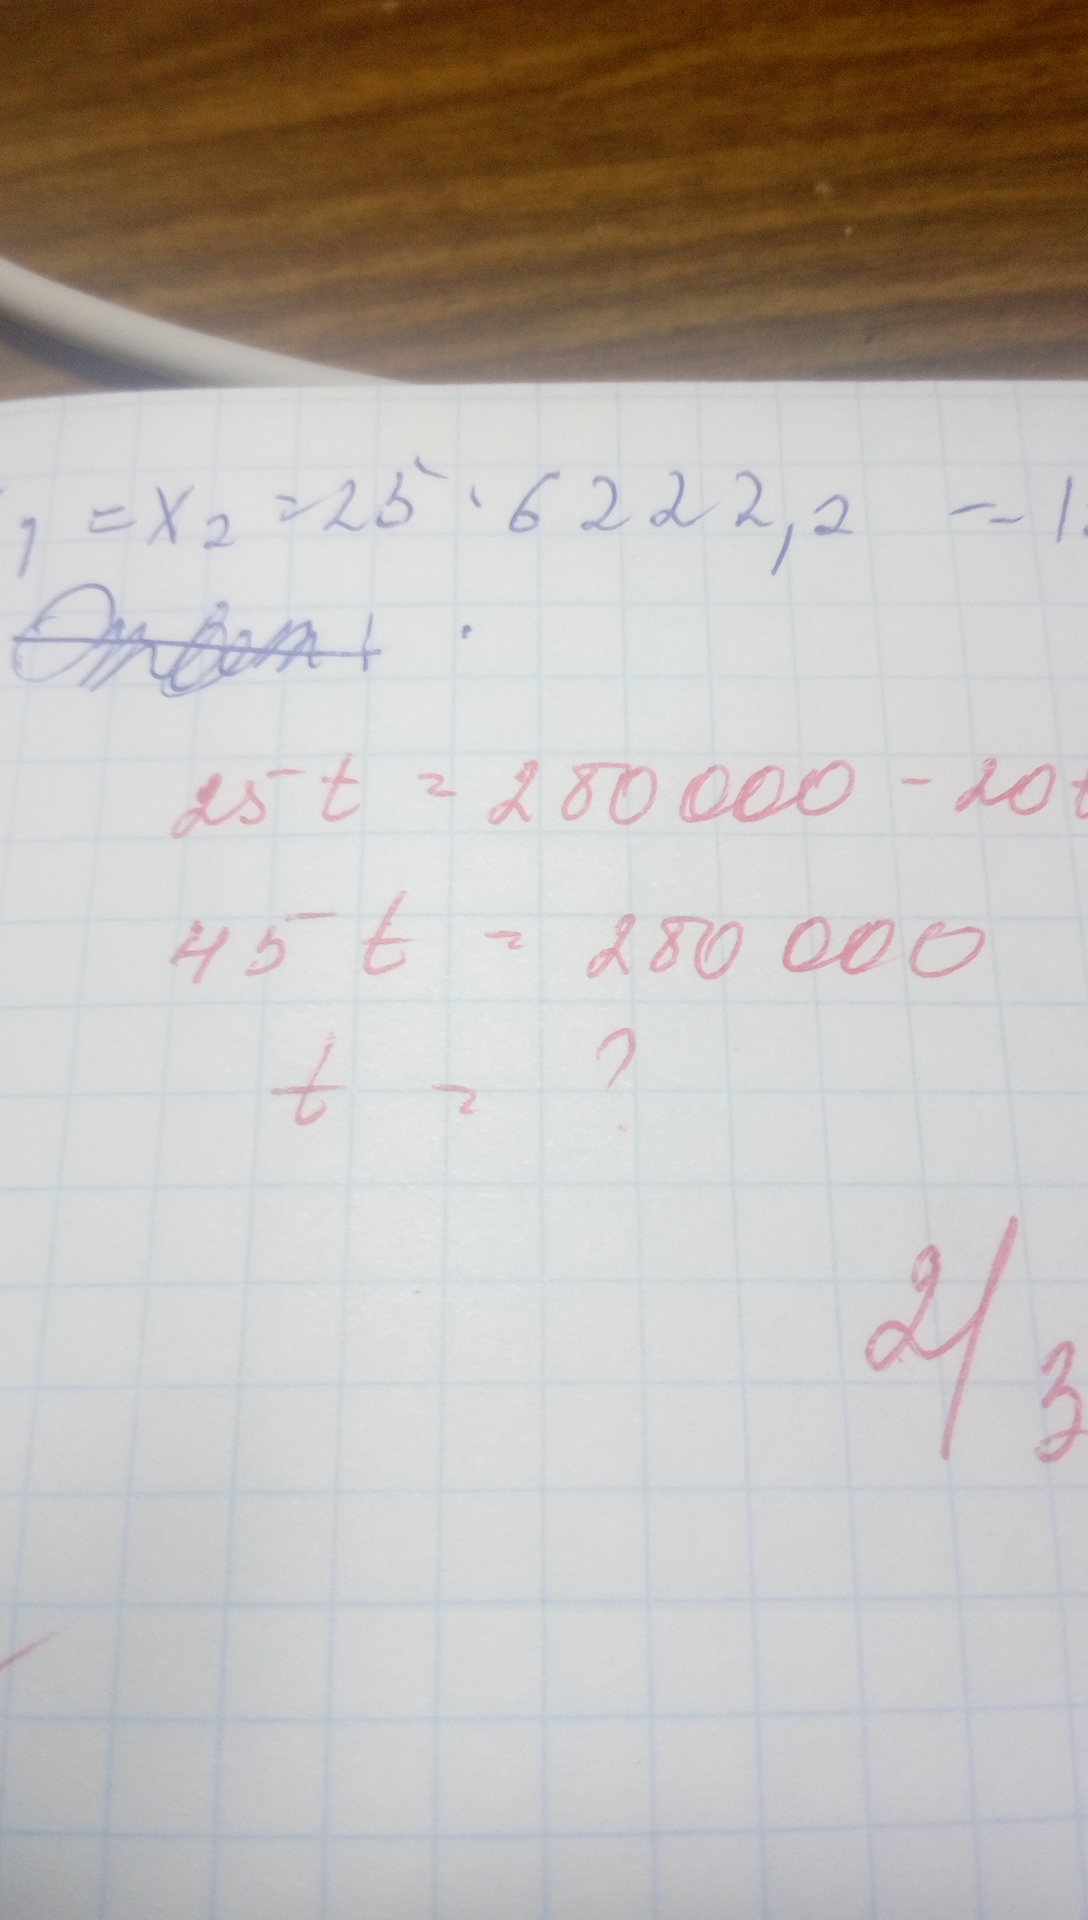 1 = x2 = 25 · 6222,2 = 1
Ответ .
25 t = 280 000 - 20t
45 t = 280 000
t = ?
2/3